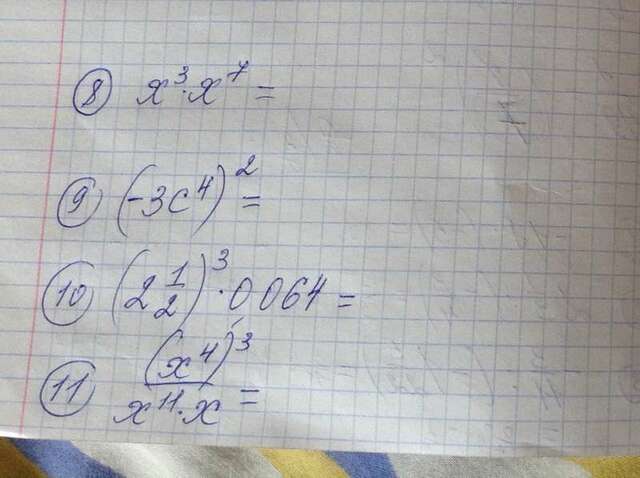 ⑧ x³·x⁷=
⑨ (-3c⁴)²=
⑩ (2 1/2)³·0,064=
⑪ (x⁴)³/(x¹¹·x)=